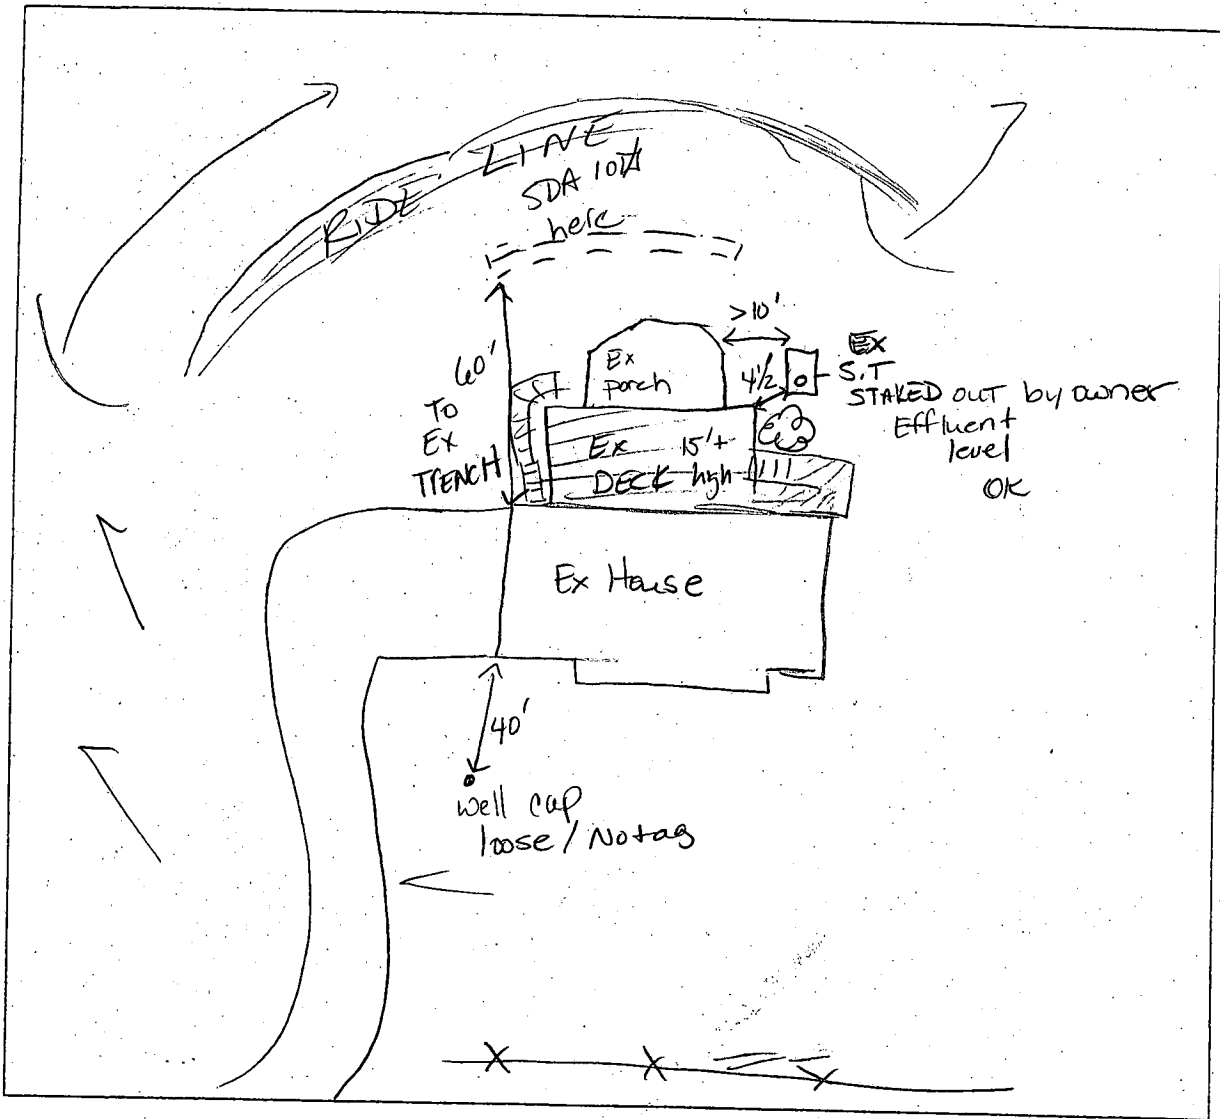 RIDE LINE
SDA
here
>10'
60'
To
Ex
TRENCH
Ex
porch
4½
EX
S.T
STAKED OUT by owner
Effluent
level
OK
Ex 15'+
DECK high
Ex House
40'
well cap
loose / No tag